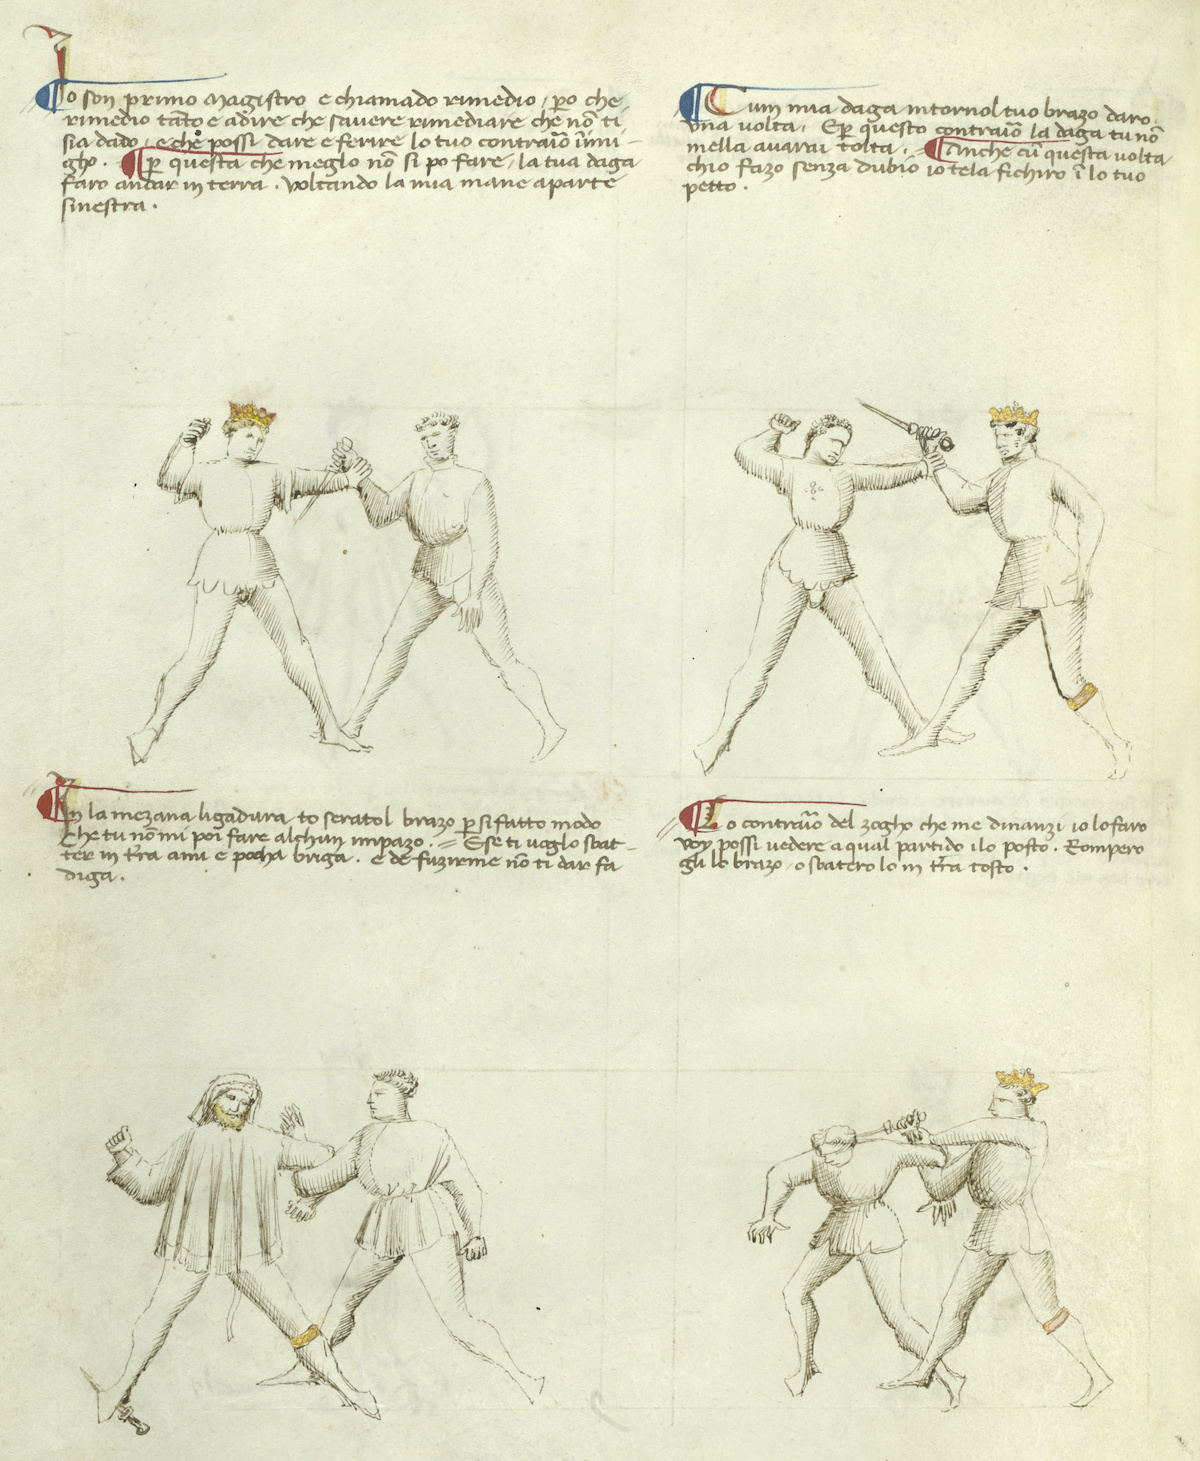 Io son primo magistro e chiamado rimedio / p̱o che
rimedio tāto e adire che savere rimediare che nō ti
sia dado, e che possi dare e ferire lo tuo contraı̄o īimi-
gho. ¶ p̱ questa che meglo nō si po fare / la tua daga
faro andar in terra. voltando la mia mane aparte
sinestra.
Cum mia daga intornol tuo brazo daro
una volta, E p̱ questo contraı̄o la daga tu nō
mella avarai tolta. ¶ Anche cū questa volta
chio fazo senza dubio io tela fichiro ī lo tuo
petto.
In la mezana ligadura to seratol brazo p̱ si fatto modo
che tu nō mi poi fare alchun impazo. E se ti voglo sbat-
ter in tr̄ra a mi e pocha briga. e de fuzirme nō ti dar fa
diga.
Lo contraı̄o del zogho che me dinanzi io lo faro
voy possi vedere a qual partido i lo posto. Rompero
gli lo brazo / o sbatero lo in tr̄ra tosto.